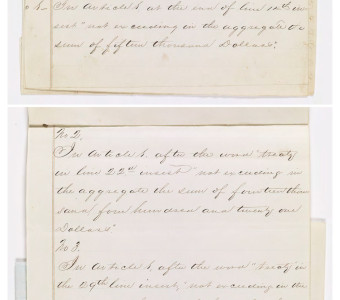 In Article 1, at the end of line 12th in-
sert "not exceeding in the aggregate the
sum of fifteen thousand Dollars".
No 2.
In Article 1, after the word "treaty
in line 22nd insert "not exceeding in
the aggregate the sum of fourteen thou
sand four hundred and twenty one
Dollars"
No 3.
In Article 1, after the word "treaty in
the 29th line insert, "not exceeding in the